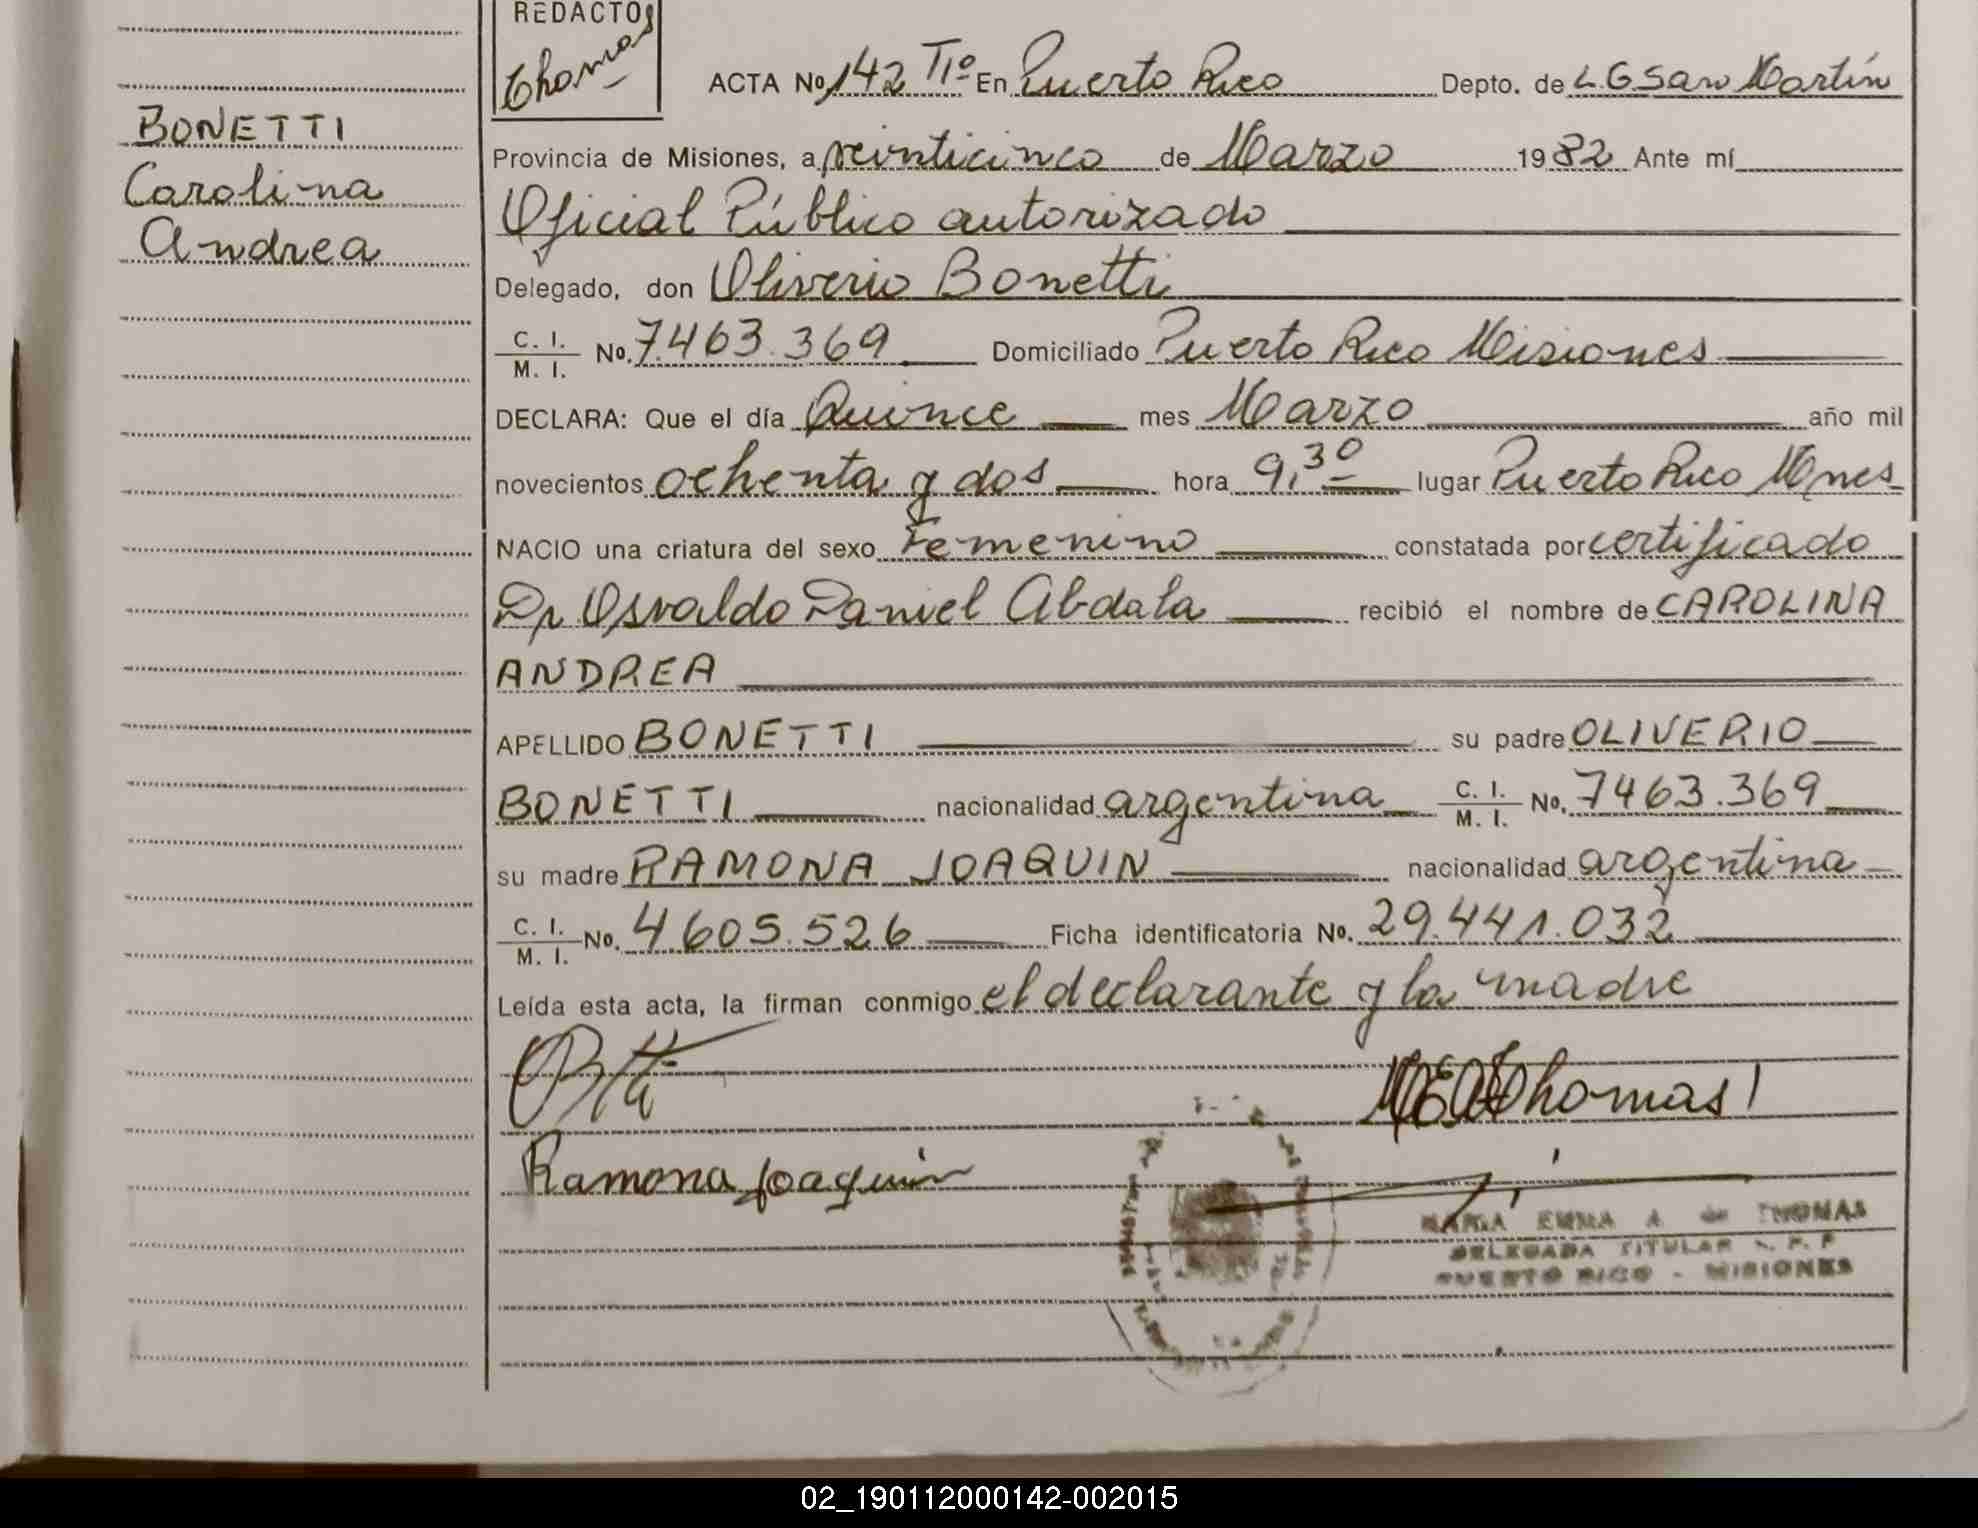 REDACTO
Thomas
ACTA No. 142 T1º En Puerto Rico Depto. de L.G San Martín
BONETTI
Carolina
Andrea
Provincia de Misiones, a veinticinco de Marzo 1982 Ante mí
Oficial Público autorizado
Delegado, don Oliverio Bonetti
C. I.
M. I. No. 7.463.369 Domiciliado Puerto Rico Misiones
DECLARA: Que el día Quince mes Marzo año mil
novecientos ochenta y dos hora 9,30 lugar Puerto Rico Mnes
NACIO una criatura del sexo Femenino constatada por certificado
Dr Osvaldo Daniel Abdala recibió el nombre de CAROLINA
ANDREA
APELLIDO BONETTI su padre OLIVERIO
BONETTI nacionalidad argentina C. I.
M. I. No. 7463.369
su madre RAMONA JOAQUIN nacionalidad argentina
C. I.
M. I. No. 4.605.526 Ficha identificatoria No. 29.441.032
Leída esta acta, la firman conmigo el declarante y la madre
Thomas
Ramona Joaquin
MARIA EMMA A. de THOMAS
DELEGADA TITULAR
PUERTO RICO - MISIONES
02_190112000142-002015